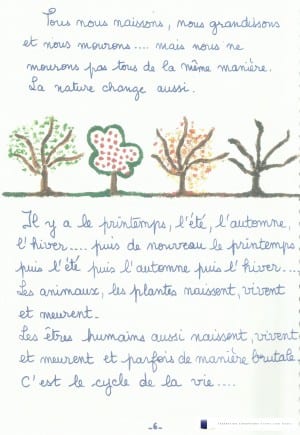 Tous nous naissons, nous grandissons
et nous mourons.... mais nous ne
mourons pas tous de la même manière.
La nature change aussi.
Il y a le printemps, l'été, l'automne,
l'hiver.... puis de nouveau le printemps,
puis l'été puis l'automne puis l'hiver....
Les animaux, les plantes naissent, vivent
et meurent.
Les êtres humains aussi naissent, vivent
et meurent et parfois de manière brutale.
C'est le cycle de la vie....
-6-